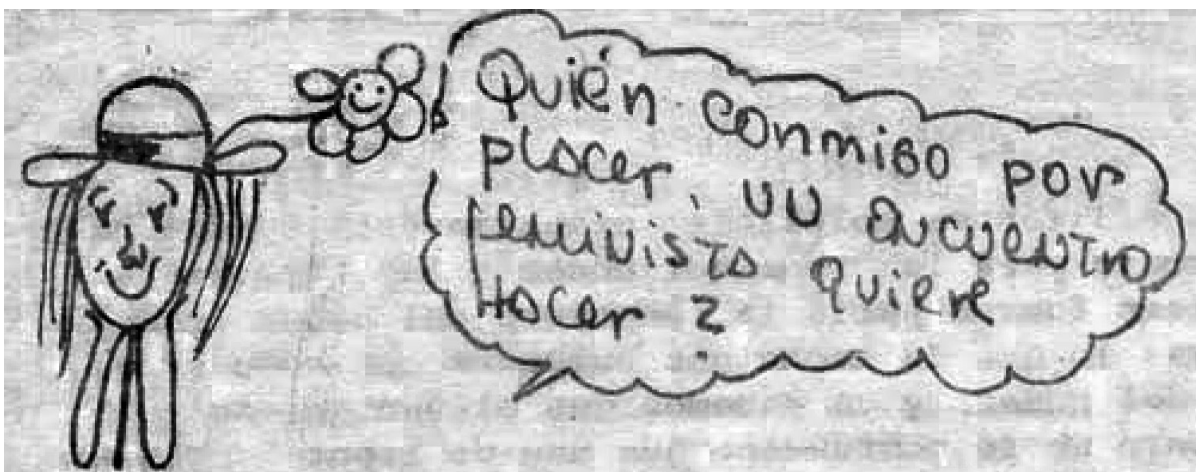 Quién conmigo por
placer, un encuentro
feminista quiere
Hacer?